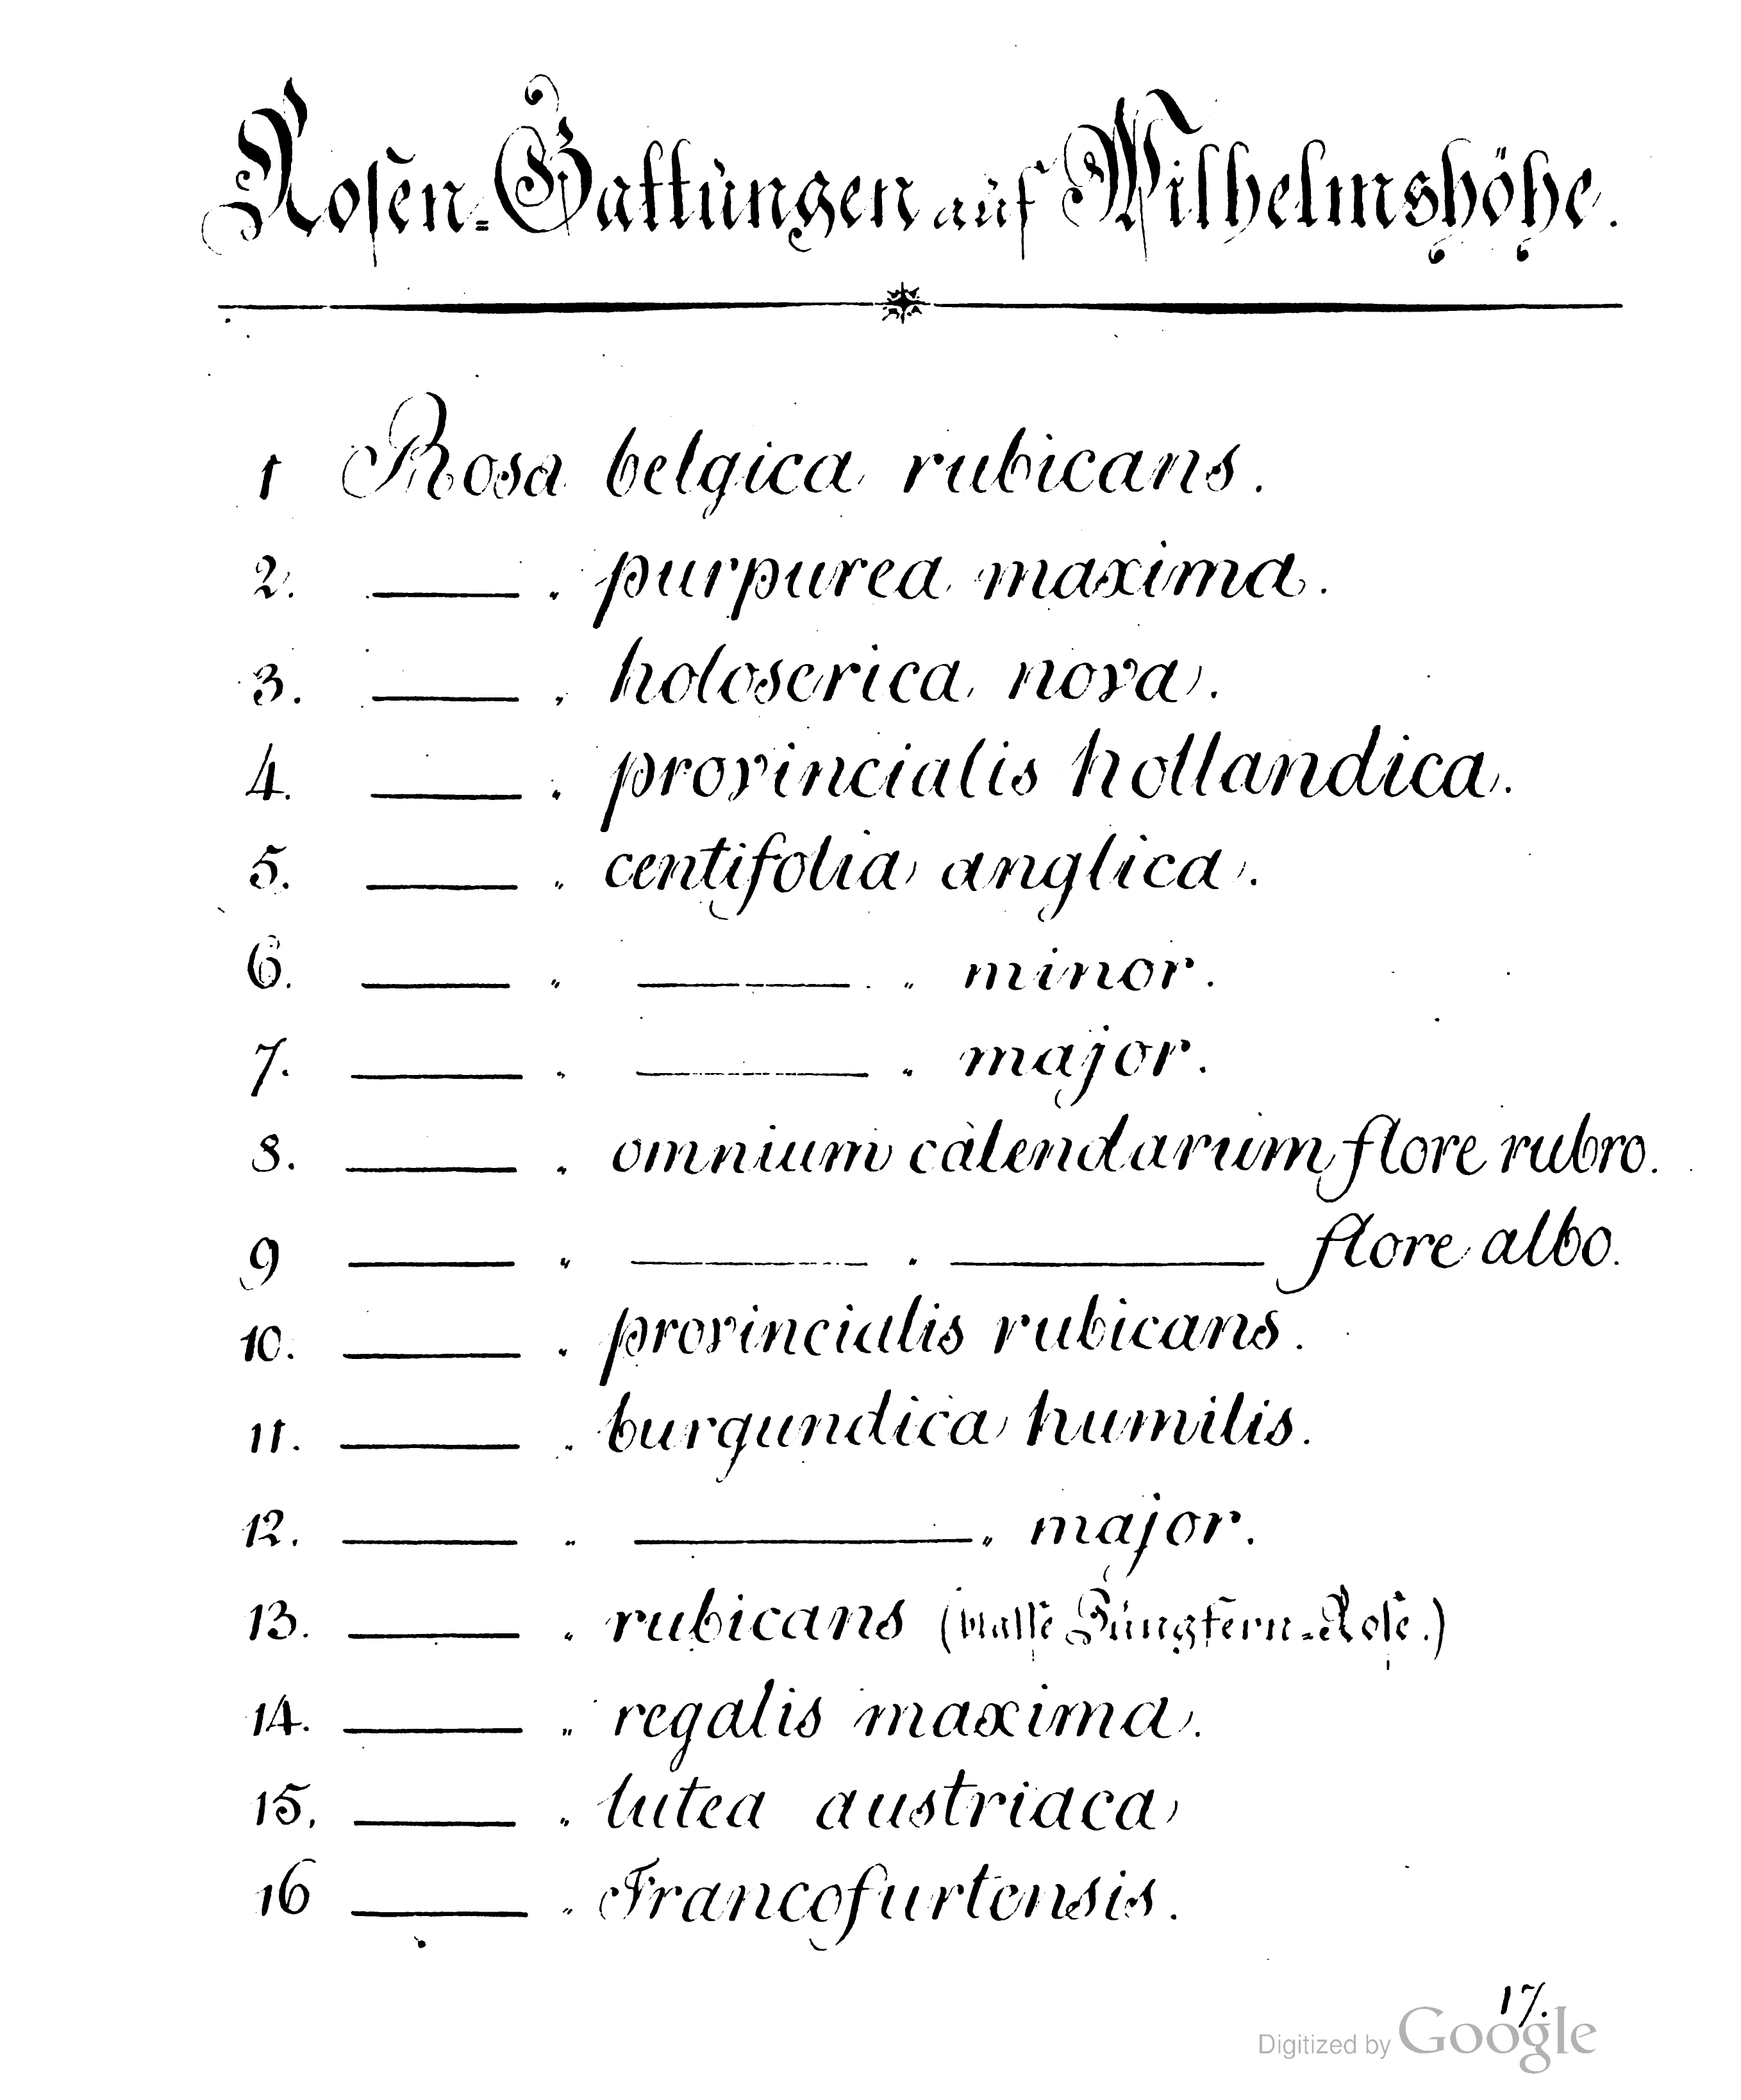 Rosen-Gattungen auf Wilhelmshöhe.
1 Rosa belgica rubicans.
2. ——— „ purpurea maxima.
3. ——— „ holoserica nova.
4. ——— „ provincialis hollandica.
5. ——— „ centifolia anglica.
6. ——— „ ——— „ minor.
7. ——— „ ——— „ major.
8. ——— „ omnium calendarum flore rubro.
9 ——— „ ——— „ ——— flore albo.
10. ——— „ provincialis rubicans.
11. ——— „ burgundica humilis.
12. ——— „ ——— „ major.
13. ——— „ rubicans (blasse Jungfern-Rose.)
14. ——— „ regalis maxima.
15. ——— „ lutea austriaca
16 ——— „ Francofurtensis.
17.
Digitized by Google